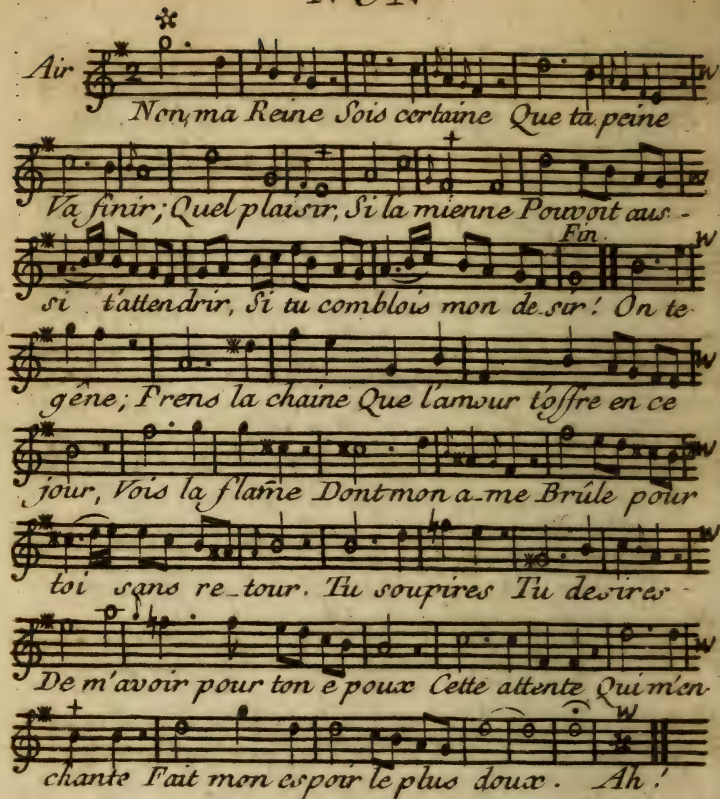 NON
Air 2 Non, ma Reine Sois certaine Que ta peine
Va finir; Quel plaisir, Si la mienne Pouvoit aus-
Fin.
si t'attendrir, Si tu comblois mon de-sir! On te
gêne; Prens la chaine Que l'amour t'offre en ce
jour, Vois la flam̃e Dont mon a-me Brûle pour
toi sans re-tour. Tu soupires Tu desires
De m'avoir pour ton e poux Cette attente Qui m'en-
chante Fait mon espoir le plus doux. Ah!